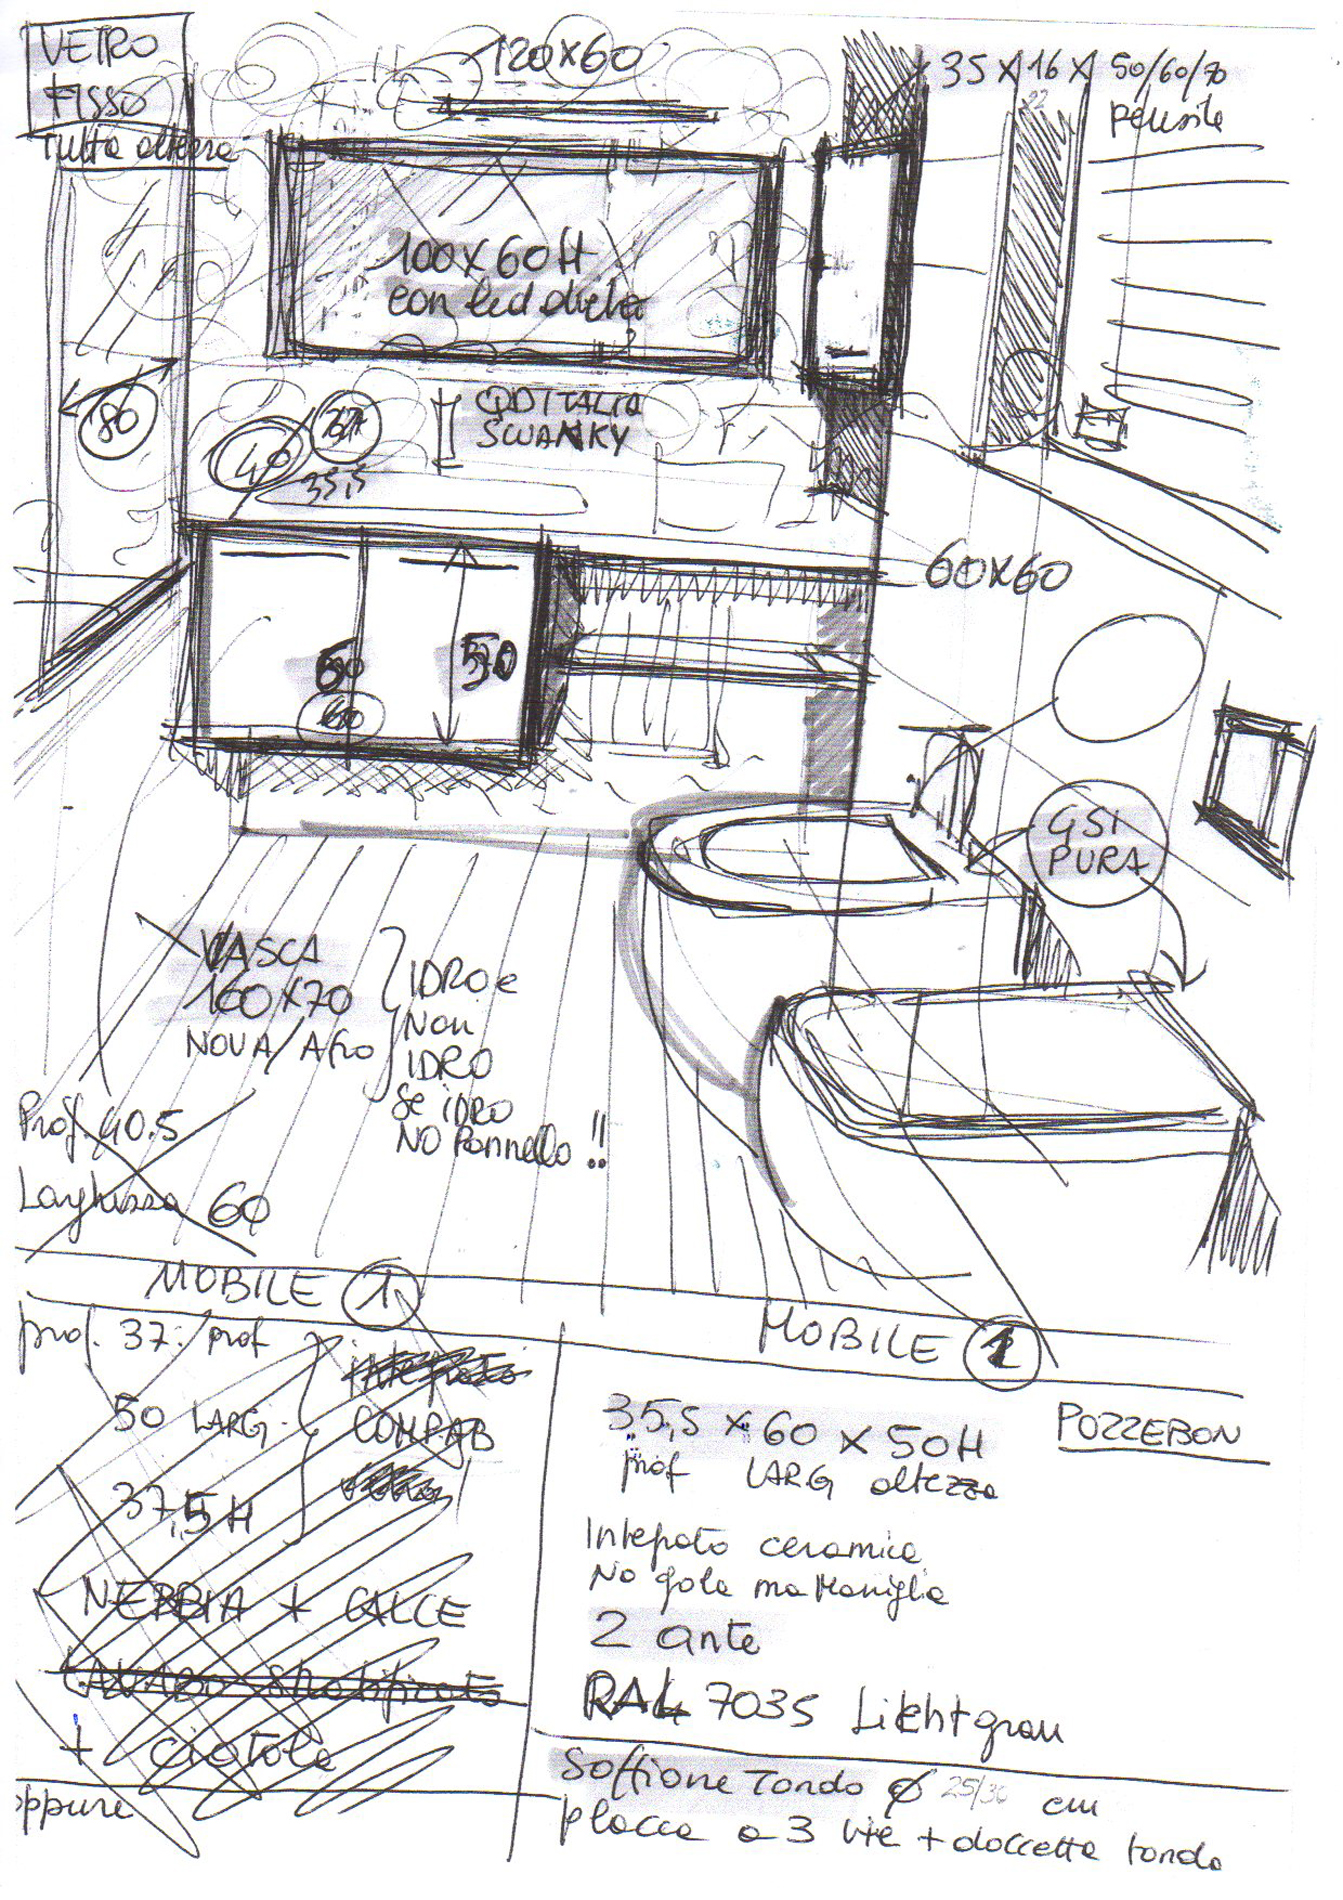 VETRO
FISSO
Tutta altezza
120x60
35 x 16 x 50/60/70
22
pensile
100x60H
con led dietro
80
40
35,5
QDDITALIA
SWANKY
60x60
50
60
GSI
PURA
VASCA
160x70
NOVA/Afro
IDRO e
Non
IDRO
se IDRO
NO Pannello !!
Prof. 40.5
Larghezza 60
MOBILE 1
prof. 37: prof
50 LARG.
COMPAB
37,5 H
NEBBIA + CALCE
+ ciotola
oppure
MOBILE
POZZEBON
35,5 x 60 x 50H
prof LARG altezza
Integrato ceramica
No gola ma Maniglia
2 ante
RAL 7035 Lichtgrau
Soffione Tondo Ø 25/30 cm
placca a 3 vie + doccetta tonda